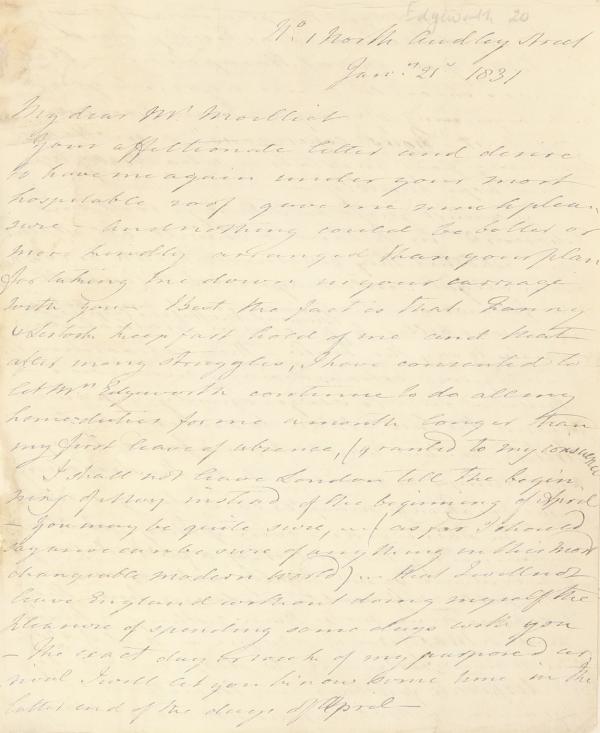 Edgeworth 20
No. 1 North Audley Street
Jany. 21st 1831
My dear Mr. Moilliet
Your affectionate letter and desire
to have me again under your most
hospitable roof gave me much plea-
sure - and nothing could be better or
more kindly arranged than your plan
for taking me down in your carriage
with you - But the fact is that Fanny
& Lestock keep fast hold of me and that
after many struggles, I have consented to
let Mrs Edgeworth continue to do all my
home-duties for me a month longer than
my first leave of absence, (granted to my conscience
I shall not leave London till the begin
ning of May instead of the beginning of April
- You may be quite sure, (as far I should
say as we can be sure of anything in this most
changeable modern world) - that I will not
leave England without doing myself the
pleasure of spending some days with you
- The exact day or week of my purposed ar
rival I will let you know some time in the
latter end of the days of April -